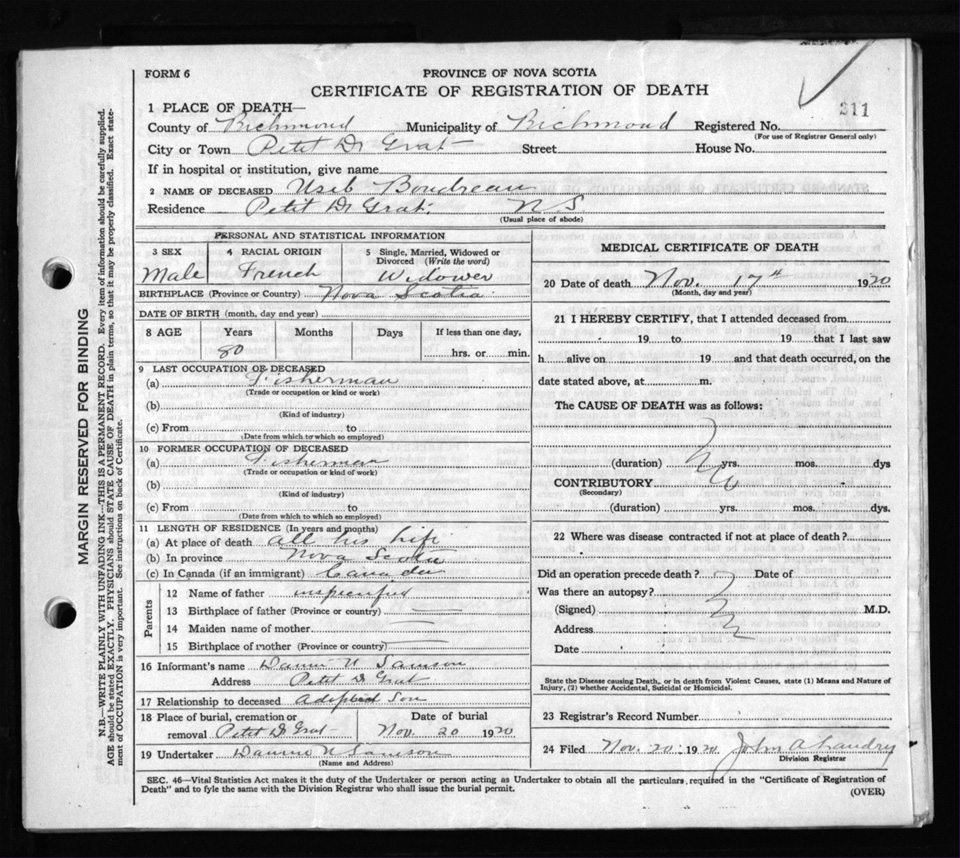 FORM 6
PROVINCE OF NOVA SCOTIA
CERTIFICATE OF REGISTRATION OF DEATH
311
1 PLACE OF DEATH—
County of Richmond Municipality of Richmond Registered No.
(For use of Registrar General only)
City or Town Petit D Grat Street House No.
If in hospital or institution, give name
2 NAME OF DECEASED Useb Boudreau
Residence Petit D Grat. N S
(Usual place of abode)
PERSONAL AND STATISTICAL INFORMATION
3 SEX 4 RACIAL ORIGIN 5 Single, Married, Widowed or Divorced (Write the word)
Male French Widower
BIRTHPLACE (Province or Country) Nova Scotia
DATE OF BIRTH (month, day and year)
8 AGE Years Months Days If less than one day,
80 hrs. or min.
9 LAST OCCUPATION OF DECEASED
(a) Fisherman
(Trade or occupation or kind or work)
(b)
(Kind of industry)
(c) From to
(Date from which to which so employed)
10 FORMER OCCUPATION OF DECEASED
(a) Fisherman
(Trade or occupation or kind of work)
(b)
(Kind of industry)
(c) From to
(Date from which to which so employed)
11 LENGTH OF RESIDENCE (In years and months)
(a) At place of death all his life
(b) In province Nova Scotia
(c) In Canada (if an immigrant) Canada
Parents
12 Name of father
13 Birthplace of father (Province or country)
14 Maiden name of mother
15 Birthplace of mother (Province or country)
16 Informant's name Samson
Address Petit D Grat
17 Relationship to deceased Adopted Son
18 Place of burial, cremation or removal Petit D Grat
Date of burial
Nov. 20 1920
19 Undertaker Samson
(Name and Address)
MEDICAL CERTIFICATE OF DEATH
20 Date of death Nov. 17th 1920
(Month, day and year)
21 I HEREBY CERTIFY, that I attended deceased from
19 to 19 that I last saw
h alive on 19 and that death occurred, on the
date stated above, at m.
The CAUSE OF DEATH was as follows:
(duration) yrs. mos. dys
CONTRIBUTORY
(Secondary)
(duration) yrs. mos. dys.
22 Where was disease contracted if not at place of death?
Did an operation precede death? Date of
Was there an autopsy?
(Signed) M.D.
Address
Date
State the Disease causing Death, or in death from Violent Causes, state (1) Means and Nature of
Injury, (2) whether Accidental, Suicidal or Homicidal.
23 Registrar's Record Number
24 Filed Nov. 20. 1920 John A Landry
Division Registrar
SEC. 46—Vital Statistics Act makes it the duty of the Undertaker or person acting as Undertaker to obtain all the particulars, required in the "Certificate of Registration of
Death" and to fyle the same with the Division Registrar who shall issue the burial permit.
(OVER)
MARGIN RESERVED FOR BINDING
N.B.—WRITE PLAINLY WITH UNFADING INK—THIS IS A PERMANENT RECORD. Every item of information should be carefully supplied.
AGE should be stated EXACTLY. PHYSICIANS should STATE CAUSE OF DEATH in plain terms, so that it may be properly classified. Exact state-
ment of OCCUPATION is very important. See instructions on back of Certificate.